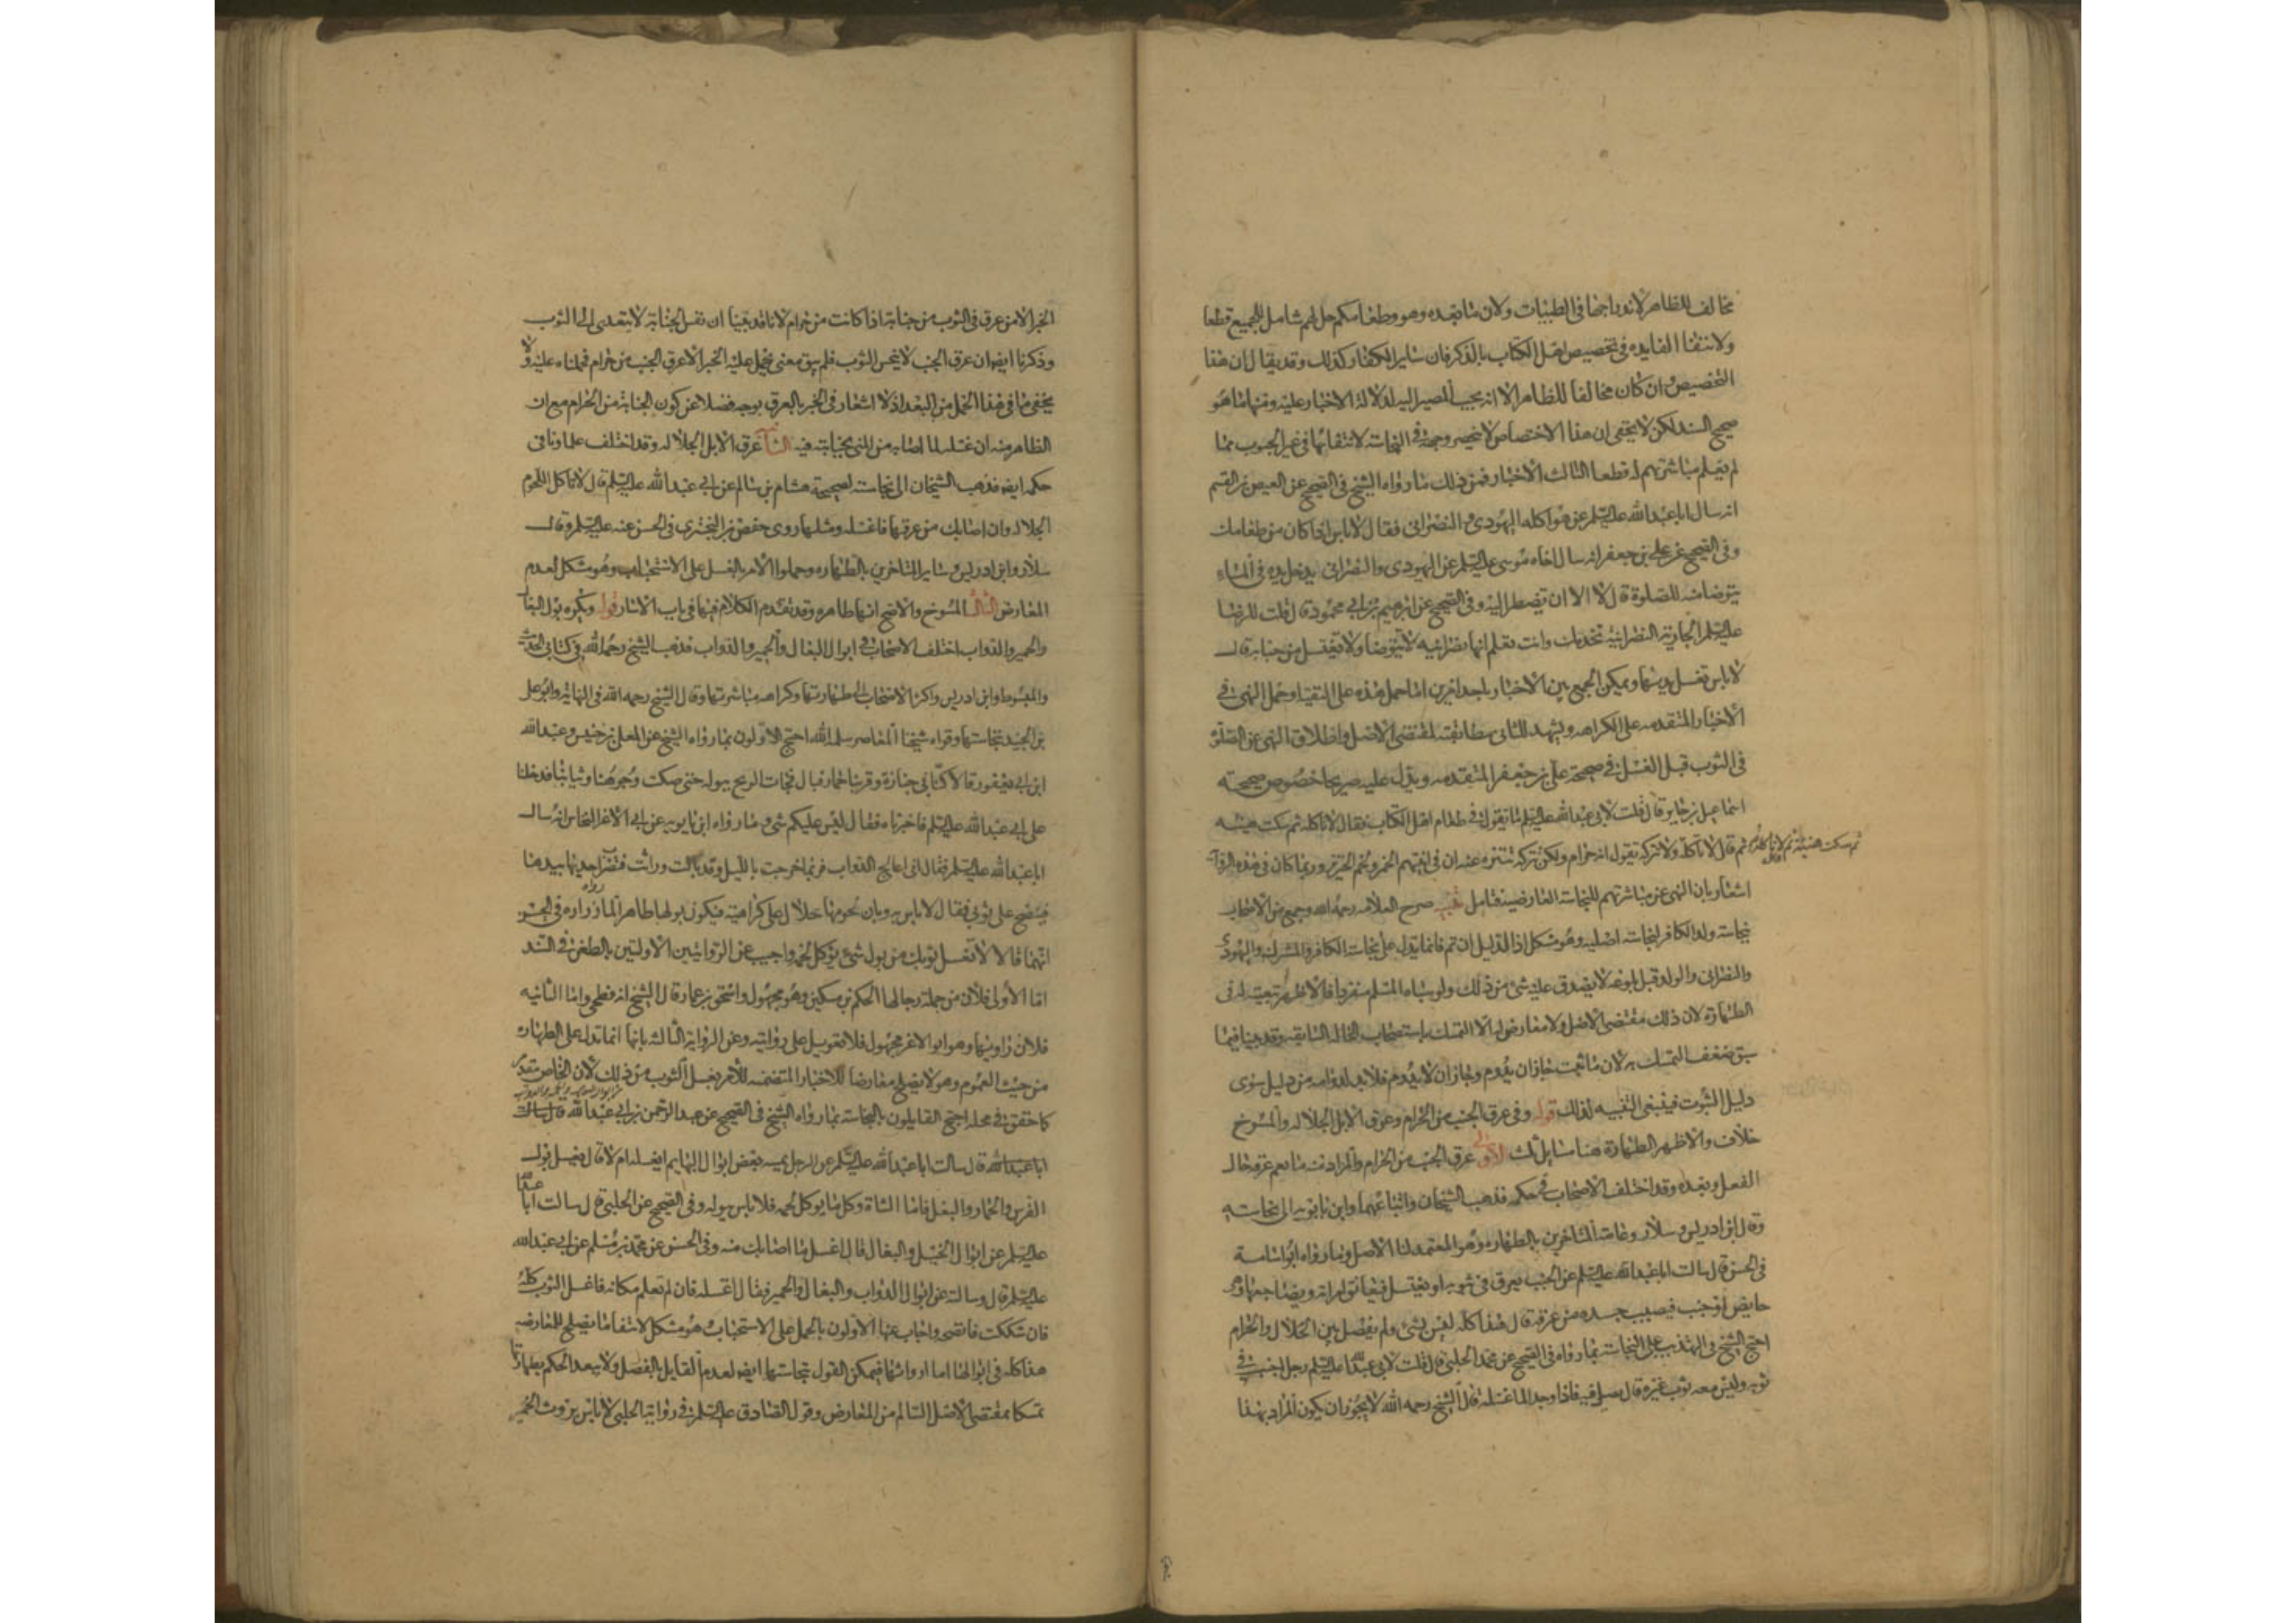 مخالف للظاهر لاندراجها في الطيبات ولان ما بعده وهو وطعامكم حل لهم شامل للجميع قطعا
ولانتفا الفايده في تخصيص اهل الكتاب بالذكر فان ساير الكفار كذلك وقد يقال ان هذا
التخصيص وان كان مخالفا للظاهر الا انه يجب المصير اليه لدلالة الاخبار عليه ومنها ما هو
صحيح السند لكن لا يخفى ان هذا الاختصاص لا ينحصر وجهه في النجاسة لانتفائها في غير الحبوب مما
لم يعلم مباشرتهم له قطعا الثالث الاخبار فمن ذلك ما رواه الشيخ في الصحيح عن العيص بن القسم
انه سال ابا عبد الله عليه السلم عن مواكله اليهودي والنصراني فقال لا باس اذا كان من طعامك
وفي الصحيح عن علي بن جعفر انه سال اخاه موسى عليه السلم عن اليهودي والنصراني يدخل يده في الماء
يتوضا منه للصلوة قال لا الا ان يضطر اليه وفي الصحيح عن ابرهيم بن ابي محمود قال قلت للرضا
عليه السلم الجارية النصرانية تخدمك وانت تعلم انها نصرانيه لا تتوضا ولا تغتسل من جنابة قال
لا باس تغسل يديها ويمكن الجمع بين الاخبار باحد امرين اما حمل هذه على التقية او حمل النهي في
الاخبار المتقدمه على الكراهه ويشهد للثاني مطابقته لمقتضى الاصل واطلاق النهي عن الصلوة
في الثوب قبل الغسل في صحيحة علي بن جعفر المتقدمه ويدل عليه صريحا خصوص صحيحته
اسماعيل بن جابر قال قلت لابي عبد الله عليه السلم ما تقول في طعام اهل الكتاب فقال لا تاكله ثم سكت هنيئه
ثم سكت هنيئة ثم قال لا تاكله
ثم قال لا تاكله ولا تتركه تقول انه حرام ولكن تتركه تتنزه عنه ان في انيتهم الخمر ولحم الخنزير وربما كان في هذه الرواية
اشعار بان النهي عن مباشرتهم للنجاسة العارضية فتامل تنبيه صرح العلامه رحمه الله وجمع من الاصحاب
نجاسة ولد الكافر لنجاسة اصليه وهو مشكل اذ الدليل ان تم فانما يدل على نجاسة الكافر والمشرك واليهودي
والنصراني والولد قبل بلوغه لا يصدق عليه شي من ذلك ولو سباه المسلم منفردا فالاظهر تبعيته له في
الطهارة لان ذلك مقتضى الاصل ولا معارض له الا التمسك باستصحاب الحاله السابقه وقد بينا فيما
سبق ضعف التمسك به لان ما ثبت جاز ان يدوم وجاز ان لا يدوم فلا بد لدوامه من دليل سوى
دليل الثبوت فينبغي التنبيه لذلك قوله وفي عرق الجنب من الحرام وعرق الابل الجلاله والمسوخ
خلاف والاظهر الطهارة هنا مسايل ثلث الاولى عرق الجنب من الحرام والمراد به ما يعم عرقه حال
الفعل وبعده وقد اختلف الاصحاب في حكمه فذهب الشيخان واتباعهما وابن بابويه الى نجاسته
وقال ابن ادريس وسلار وعامة المتاخرين بالطهاره وهو المعتمد لنا الاصل وما رواه ابو اسامة
في الحسن قال سالت ابا عبد الله عليه السلم عن الجنب يعرق في ثوبه او يغتسل فيعانق امراته ويضاجعها وهي
حايض او جنب فيصيب جسده من عرقه قال هذا كله ليس بشي ولم يفصل بين الحلال والحرام
احتج الشيخ في التهذيب على النجاسة بما رواه في الصحيح عن محمد الحلبي قال قلت لابي عبد الله عليه السلم رجل اجنب في
ثوبه وليس معه ثوب غيره قال يصلي فيه فاذا وجد الما غسله قال الشيخ رحمه الله لا يجوز ان يكون المراد بهذا
الخبر الا من عرق في الثوب من جنابة اذا كانت من حرام لانا قد بينا ان نفس الجنابة لا تتعدى الى الثوب
وذكرنا ايضا ان عرق الجنب لا ينجس الثوب فلم يبق معنى يحمل عليه الخبر الا عرق الجنب من حرام فحملناه عليه ولا
يخفى ما في هذا الحمل من البعد اذ لا اشعار في الخبر بالعرق بوجه فضلا عن كون الجنابة من الحرام مع ان
الظاهر منه ان غسله لما اصابه من المني بجنابته فيه الثانية عرق الابل الجلاله وقد اختلف علماونا في
حكمه ايضا فذهب الشيخان الى نجاسته لصحيحة هشام بن سالم عن ابي عبد الله عليه السلم قال لا تاكل اللحوم
الجلاله وان اصابك من عرقها فاغسله ومثلها روى حفص بن البختري في الحسن عنه عليه السلم وقال
سلار وابن ادريس وساير المتاخرين بالطهاره وحملوا الامر بالغسل على الاستحباب وهو مشكل لعدم
المعارض الثالث المسوخ والاصح انها طاهره وقد تقدم الكلام فيها في باب الاسار قوله ويكره بول البغال
والحمير والدواب اختلف الاصحاب في ابوال البغال والحمير والدواب فذهب الشيخ رحمه الله في كتابي الحديث
والمبسوط وابن ادريس واكثر الاصحاب الى طهارتها وكراهه مباشرتها وقال الشيخ رحمه الله في النهاية وابو علي
بن الجنيد بنجاستها وقواه شيخنا المعاصر سلمه الله احتج الاولون بما رواه الشيخ عن المعلى بن خنيس وعبد الله
ابن ابي يعفور قالا كنا في جنازة وقربنا حمار فبال فجات الريح ببوله حتى صكت وجوهنا وثيابنا فدخلنا
على ابي عبد الله عليه السلم فاخبرناه فقال ليس عليكم شي وما رواه ابن بابويه عن ابي الاغر النخاس انه سال
ابا عبد الله عليه السلم فقال اني اعالج الدواب فربما خرجت بالليل وقد بالت وراثت فتضرب احديها بيدها
فينضح على ثوبي فقال لا باس به وبان لحومها حلال على كراهية فيكون بولها طاهرا لما رواه زراره في الحسن
انهما قالا لا تغسل ثوبك من بول شي يؤكل لحمه واجيب عن الروايتين الاولتين بالطعن في السند
اما الاولى فلان من جملة رجالها الحكم بن مسكين وهو مجهول واسحق بن عمار قال الشيخ انه فطحي واما الثانيه
فلان راويها وهو ابو الاغر مجهول فلا تعويل على روايته وعن الرواية الثالثه بانها انما تدل على الطهاره
من حيث العموم وهو لا يصلح معارضا للاخبار المتضمنه للامر بغسل الثوب من ذلك لان الخاص مقدم
كما حقق في محله احتج القايلون بالنجاسة بما رواه الشيخ في الصحيح عن عبد الرحمن بن ابي عبد الله قال سالت
ابا عبد الله قال سالت ابا عبد الله عليه السلم عن الرجل يمسه بعض ابوال البهايم ايغسله ام لا قال يغسل بول
الفرس والحمار والبغل فاما الشاة وكل ما يوكل لحمه فلا باس ببوله وفي الصحيح عن الحلبي قال سالت ابا عبد الله
عليه السلم عن ابوال الخيل والبغال قال اغسل ما اصابك منه وفي الحسن عن محمد بن مسلم عن ابي عبد الله
عليه السلم قال وسالته عن ابوال الدواب والبغال والحمير فقال اغسله فان لم تعلم مكانه فاغسل الثوب كله
فان شككت فانضحه واجاب عنها الاولون بالحمل على الاستحباب وهو مشكل لانتفا ما يصلح للمعارضه
هذا كله في ابوالها اما ارواثها فيمكن القول بنجاستها ايضا لعدم القايل بالفصل ولا يبعد الحكم بطهارتها
تمسكا بمقتضى الاصل السالم من المعارض وقول الصادق عليه السلم في رواية الحلبي لا باس بروث الحمير